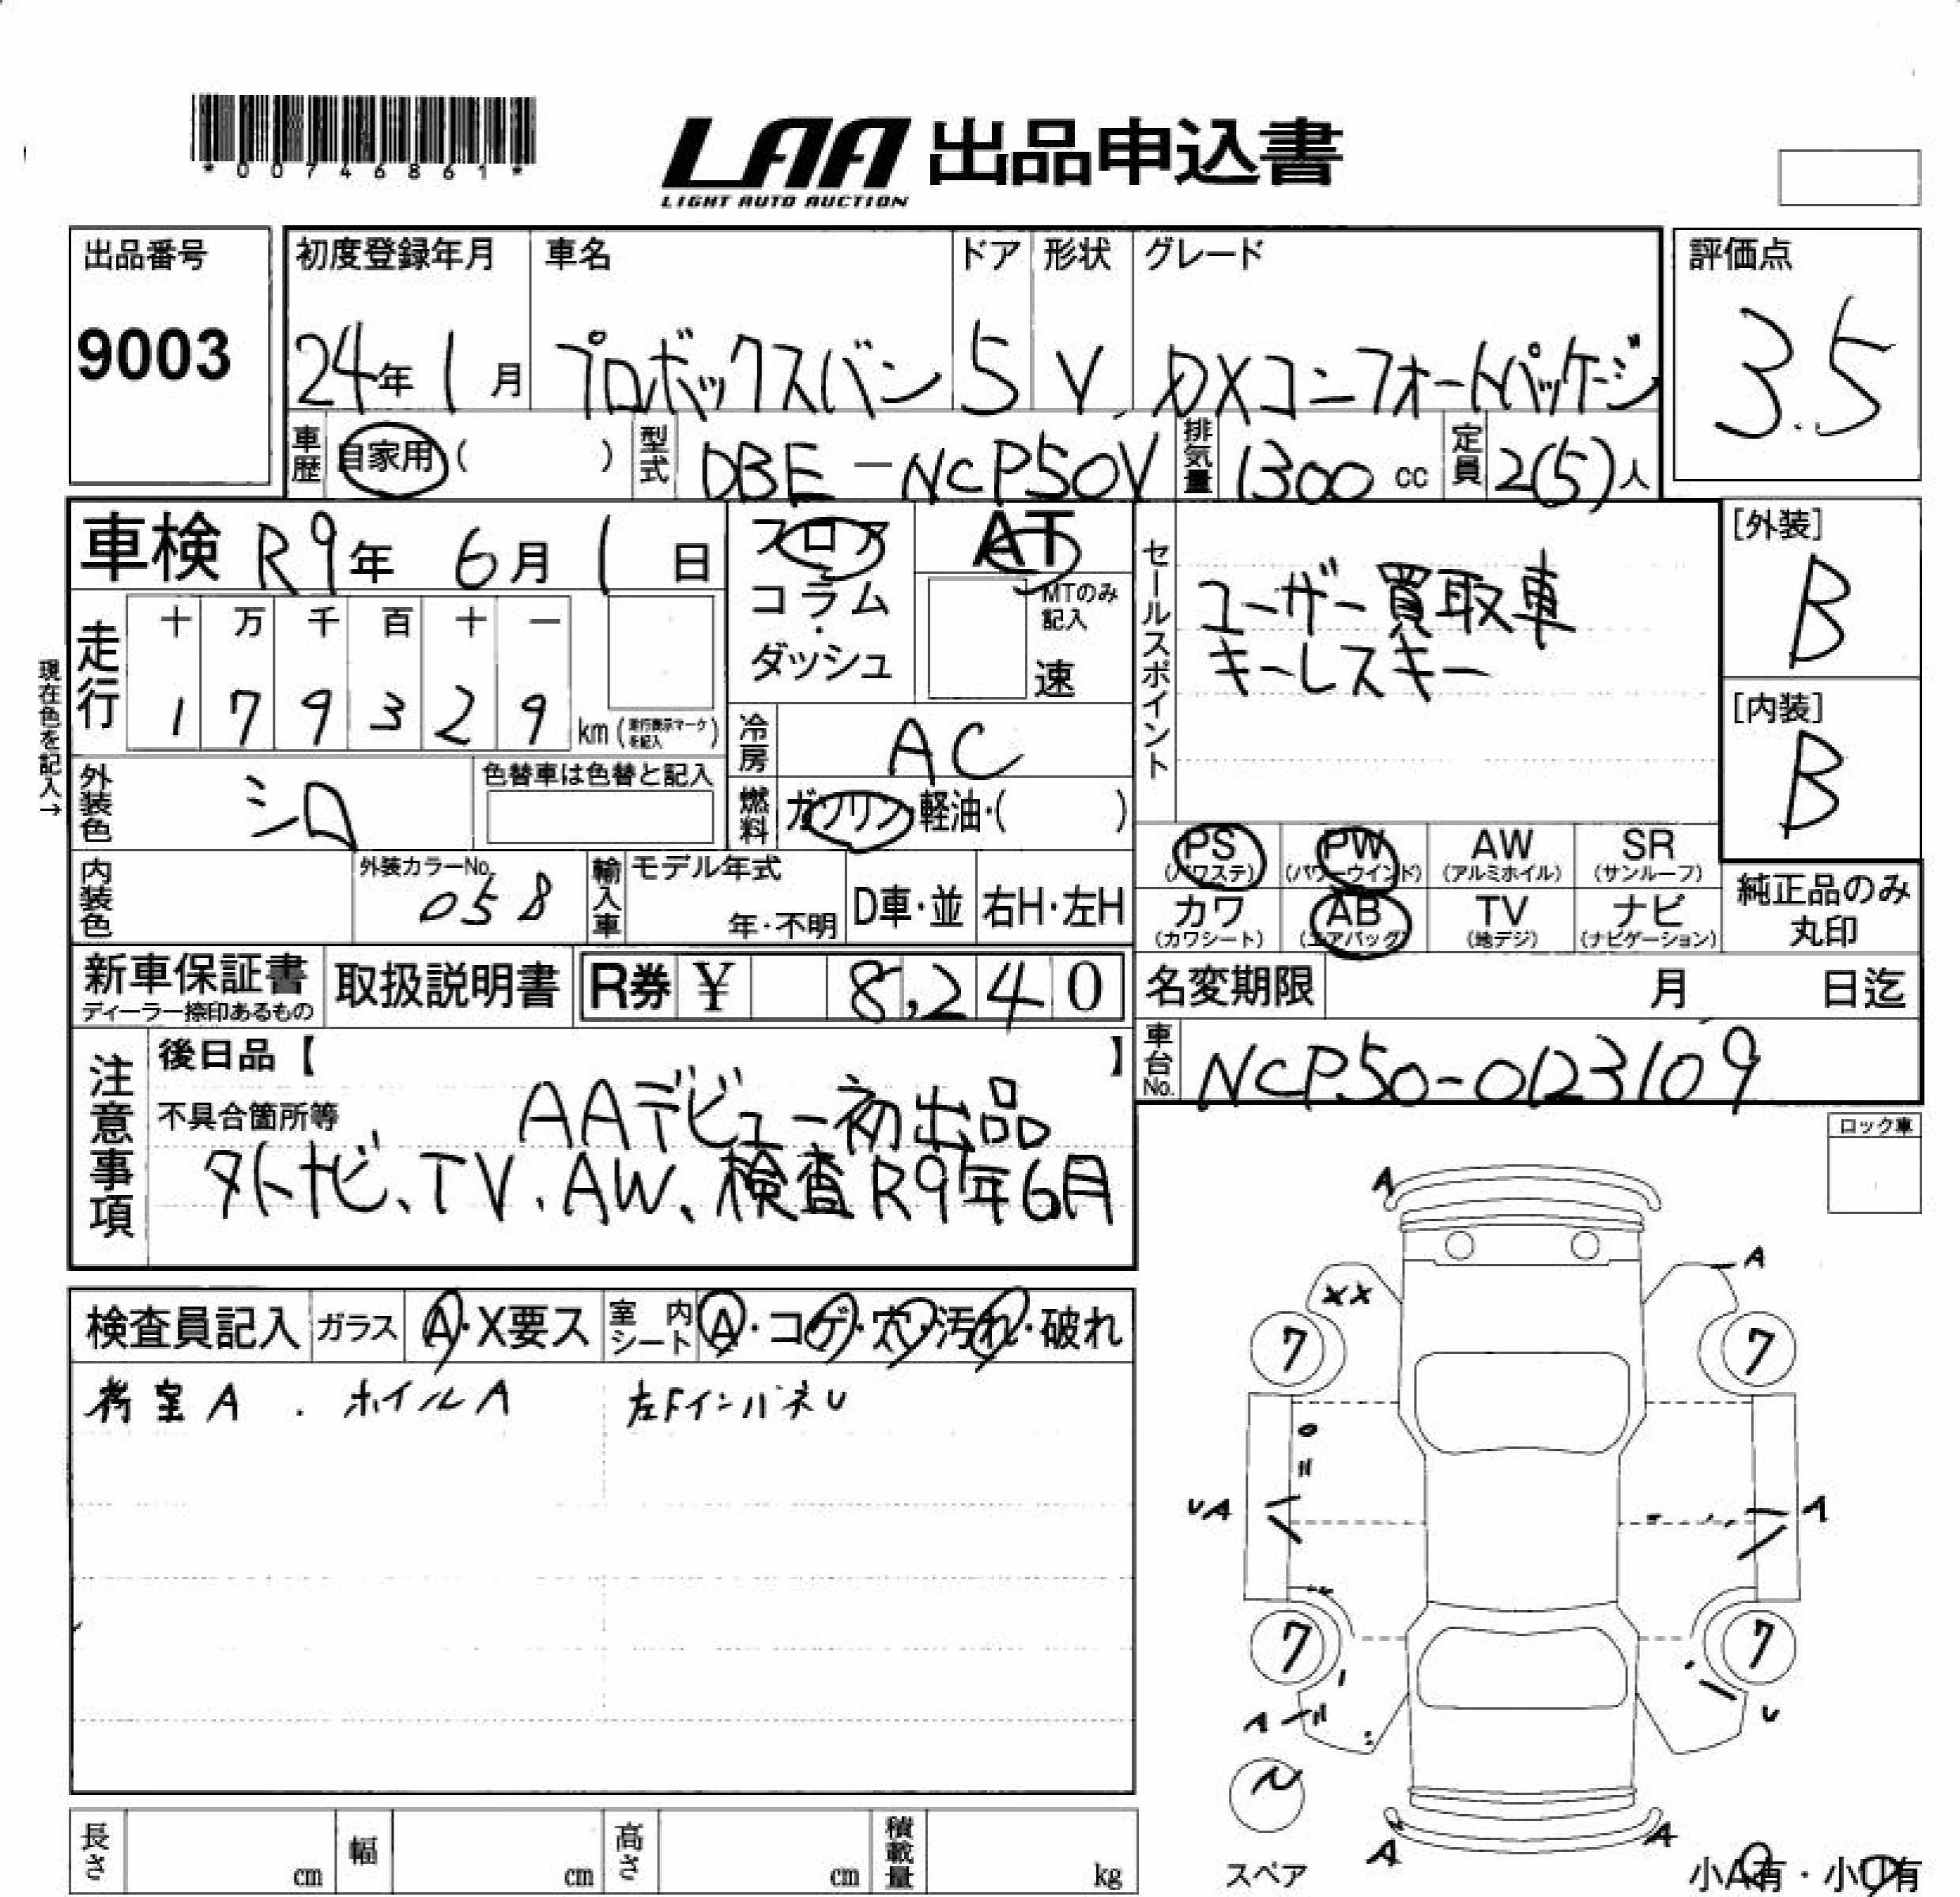 *00746861*
LAA 出品申込書
LIGHT AUTO AUCTION
出品番号
9003
初度登録年月 車名 ドア 形状 グレード
24年 1月 プロボックスバン 5 V DXコンフォートパッケージ
車歴 自家用( ) 型式 DBE-NCP50V 排気量 1300 cc 定員 2(5)人
評価点
3.5
車検 R9年 6月 1日
フロア
コラム
ダッシュ
AT
MTのみ
記入
速
走行
十 万 千 百 十 一
1 7 9 3 2 9 km (走行表示マークを記入)
現在色を記入→
外装色 シロ
色替車は色替と記入
冷房 AC
燃料 ガソリン・軽油・( )
セールスポイント
ユーザー買取車
キーレスキー
[外装]
B
[内装]
B
PS (パワステ) PW (パワーウインド) AW (アルミホイル) SR (サンルーフ)
カワ (カワシート) AB (エアバッグ) TV (地デジ) ナビ (ナビゲーション)
純正品のみ
丸印
内装色
外装カラーNo.
058
輸入車 モデル年式
年・不明 D車・並 右H・左H
新車保証書
ディーラー捺印あるもの
取扱説明書 R券 ¥ 8,240
名変期限 月 日迄
車台No. NCP50-0123109
注意事項
後日品【 】
不具合箇所等
AAデビュー初出品
外ナビ、TV、AW、検査R9年6月
ロック車
検査員記入 ガラス A・X要ス 室内シート A・コゲ・穴・汚れ・破れ
荷室A . ホイルA 左FインパネU
A
A
XX
7 7
UA
A
7 7
A
U
スペア
A A
小A有・小U有
長さ cm 幅 cm 高さ cm 積載量 kg